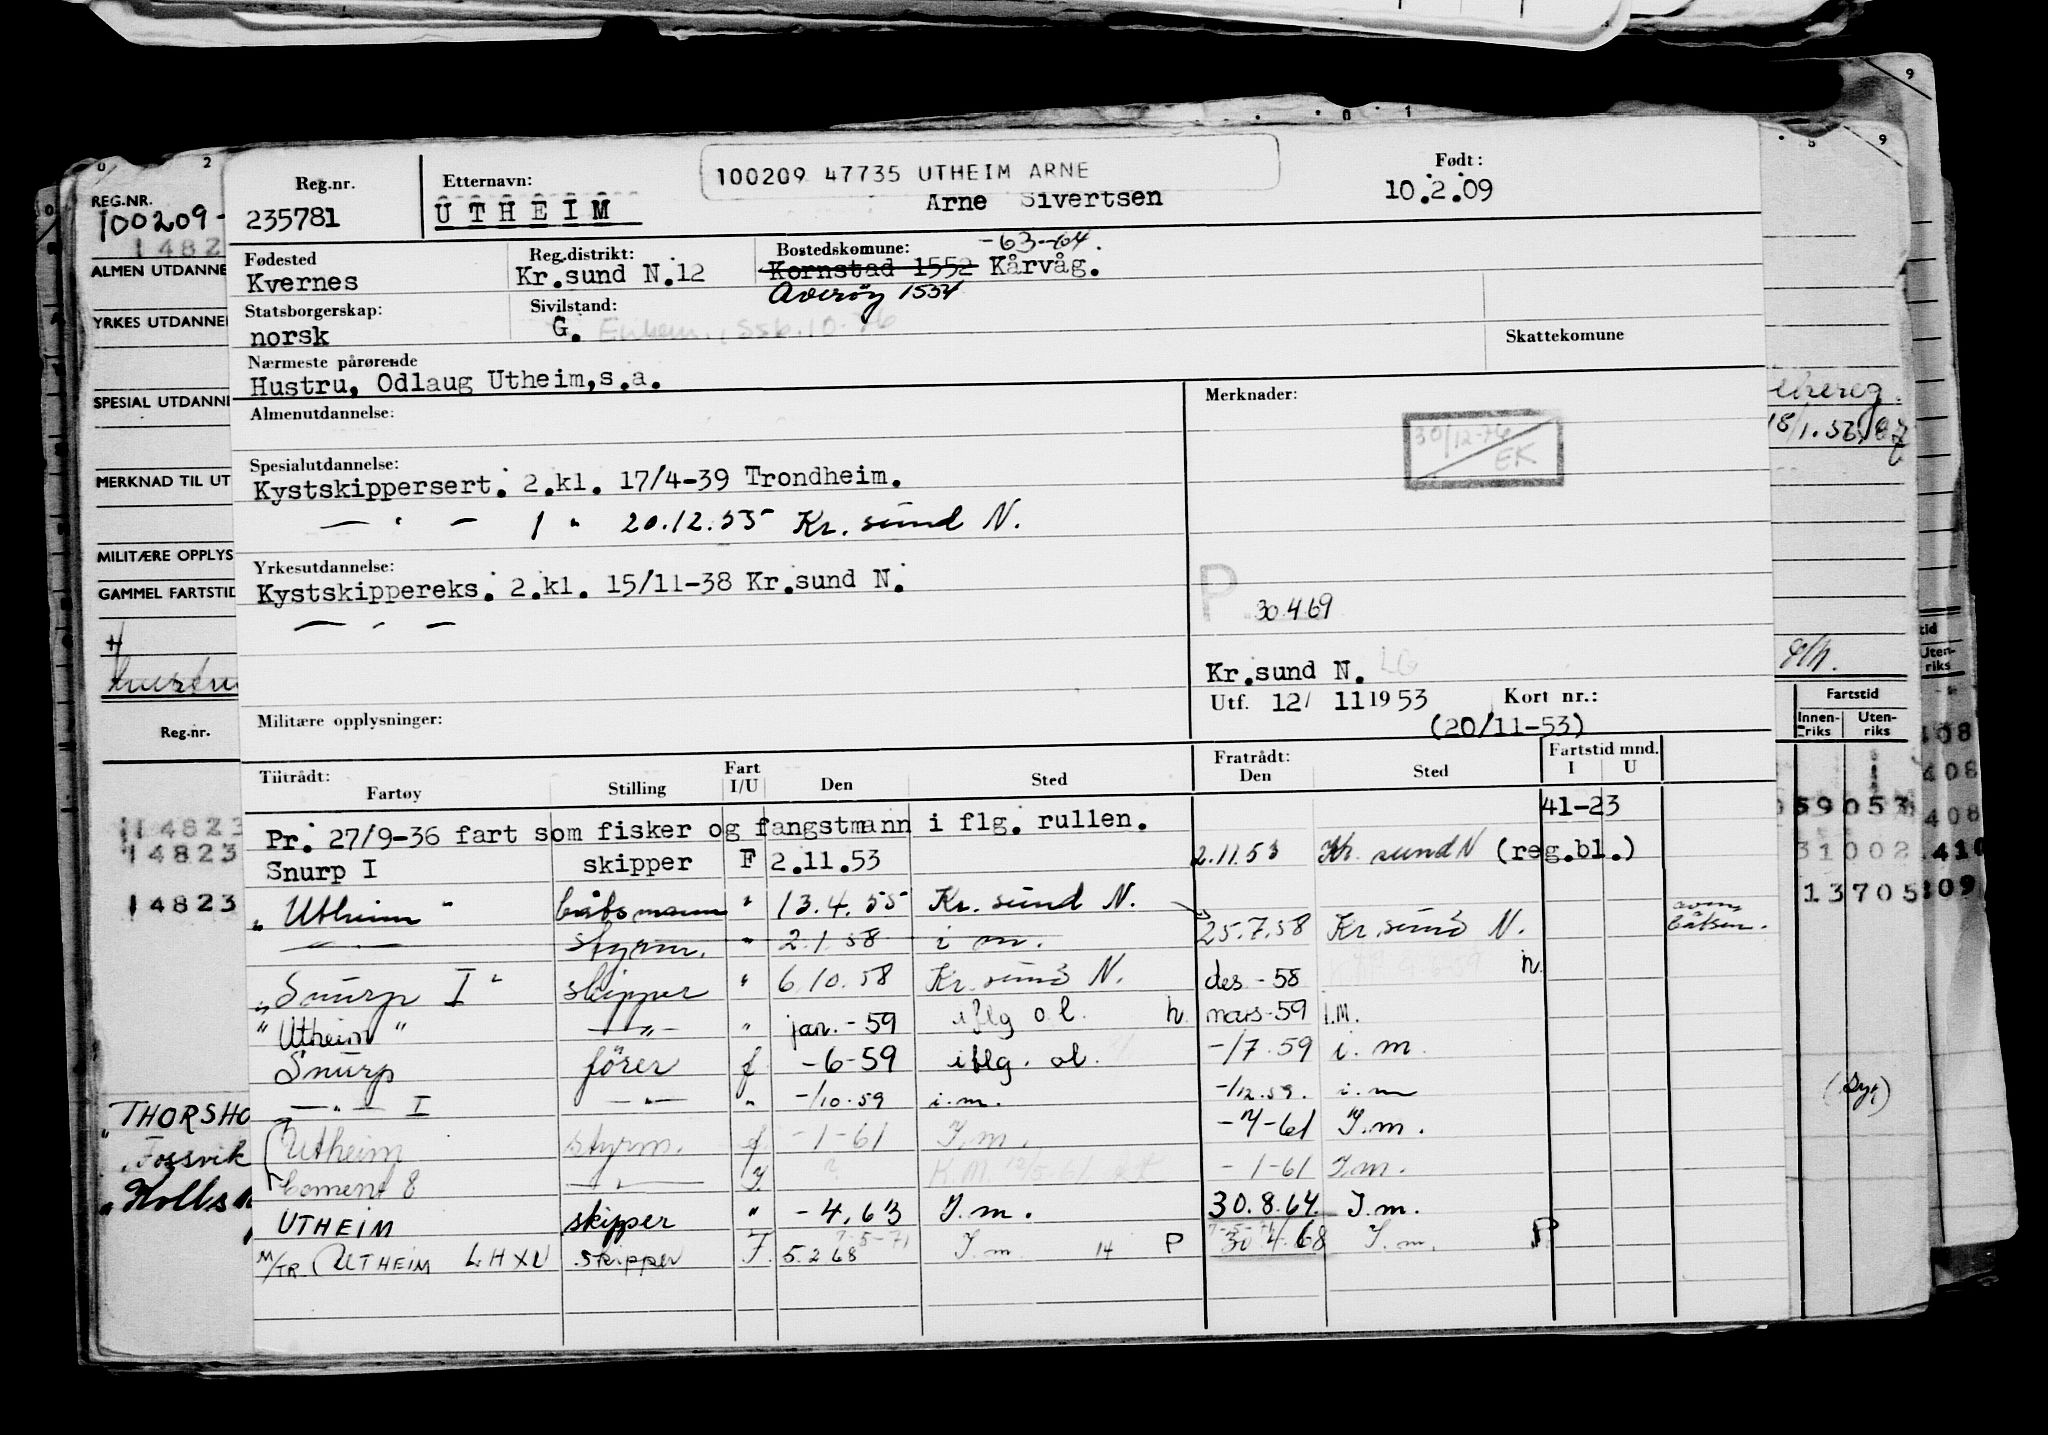 100209 47735 UTHEIM ARNE
Reg.nr. Etternavn: Født:
235781 UTHEIM Arne Sivertsen 10.2.09
Fødested Reg.distrikt: Bostedskomune: -63-64.
Kvernes Kr.sund N.12 Kornstad 1552 Kårvåg.
Averøy 1554
Statsborgerskap: Sivilstand:
norsk G.
Skattekomune
Nærmeste pårørende
Hustru, Odlaug Utheim, s.a.
Almenutdannelse: Merknader:
30/12-76
EK
Spesialutdannelse:
Kystskippersert. 2.kl. 17/4-39 Trondheim.
— " — 1 " 20.12.55 Kr. sund N.
Yrkesutdannelse:
Kystskippereks. 2.kl. 15/11-38 Kr.sund N.
— " —
P 30.4.69
Kr.sund N. LG
Militære opplysninger: Utf. 12/ 11 1953 Kort nr.:
(20/11-53)
Tiltrådt: Fart Fratrådt: Fartstid mnd.
Fartøy Stilling I/U Den Sted Den Sted I U
41-23
Pr. 27/9-36 fart som fisker og fangstmann i flg. rullen.
Snurp I skipper F 2.11.53 2.11.53 Kr. sund N (reg.bl.)
"Utheim" båtsmann " 13.4.55 Kr. sund N.
— " — styrm. " 2.1.58 i m. 25.7.58 Kr. sund N.
"Snurp I" skipper " 6.10.58 Kr. sund N. des -58 h.
"Utheim" — " — " jan. -59 iflg o.l. h mars-59 I.M.
Snurp fører f -6-59 iflg. ol. -/7.59 i. m.
— " — I — " — " -/10.59 i.m. -/12.59. i. m
Utheim styrm. f. -1-61 I.m. -4-61 I.m.
Coment 8 — " — -1-61 I.m.
UTHEIM skipper " -4.63 I.m. 30.8.64. I.m.
M/TR. UTHEIM LHXU skipper F. 5.2.68 I.m 14 P 30.4.68 I.m. P
REG.NR.
100209-
ALMEN UTDANNE
YRKES UTDANNE
SPESIAL UTDANN
MERKNAD TIL UT
MILITÆRE OPPLYS
GAMMEL FARTSTID
Reg.nr.
14823
14823
14823
"THORSHO
"Fossvik
Fartstid
Innen-riks Uten-riks
59053
31002
13705
408
408
408
410